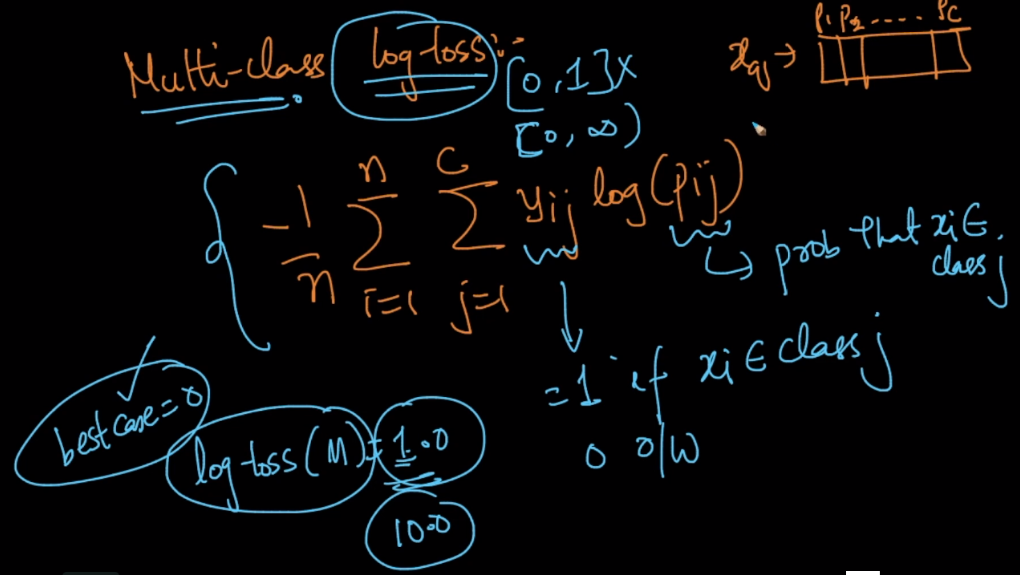 Multi-class log-loss :→
[0,1]x
[0,∞)
xq →
P1 P2 ----- Pc
-1/n n∑i=1 C∑j=1 yij log(Pij)
↳ prob that xi ∈ class j
=1 if xi ∈ class j
0 o/w
best case = 0
log-loss (M) = 1.0
10.0